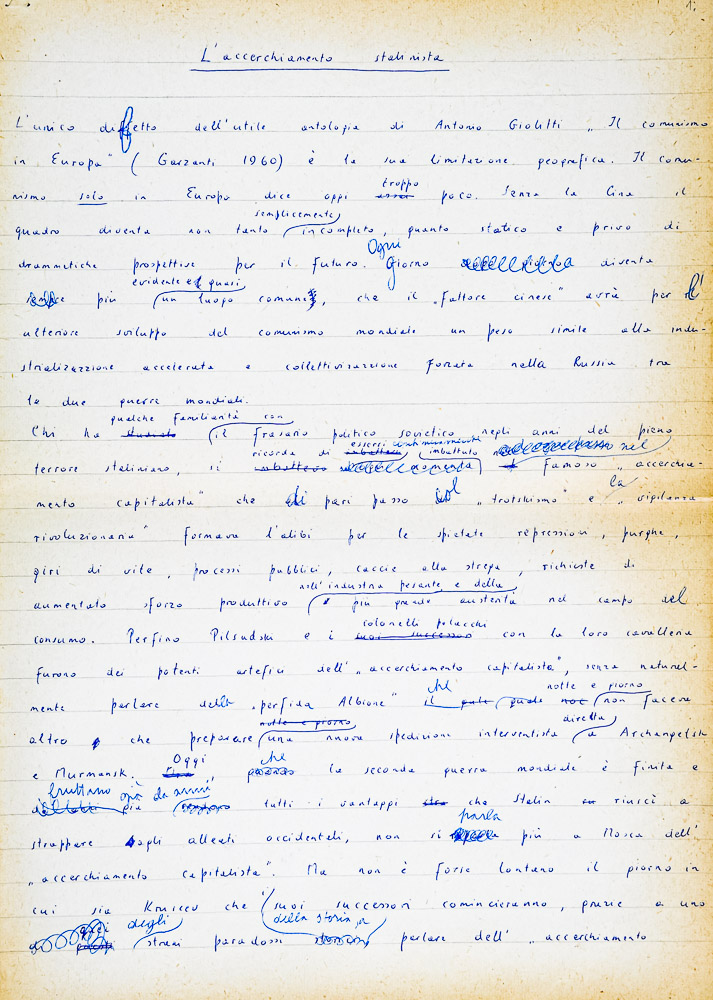 1.
L'accerchiamento stalinista
L'unico difetto dell'utile antologia di Antonio Giolitti „Il comunismo
in Europa" (Garzanti 1960) è la sua limitazione geografica. Il comu-
nismo solo in Europa dice oggi troppo poco. Senza la Cina il
quadro diventa non tanto semplicemente incompleto, quanto statico e privo di
drammatiche prospettive per il futuro. Ogni giorno diventa
più evidente e quasi un luogo comune, che il „fattore cinese" avrà per l'
ulteriore sviluppo del comunismo mondiale un peso simile alla indu-
strializzazione accelerata e collettivizzazione forzata nella Russia tra
le due guerre mondiali.
Chi ha qualche familiarità con il frasario politico sovietico negli anni del pieno
terrore staliniano, si ricorda di essersi continuamente imbattuto nel famoso „accerchia-
mento capitalista" che di pari passo col „trotskismo" e la „vigilanza
rivoluzionaria" formava l'alibi per le spietate repressioni, purghe,
giri di vite, processi pubblici, caccie alla strega, richieste di
aumentato sforzo produttivo nell'industria pesante e della più grande austerità nel campo del
consumo. Perfino Pilsudski e i colonelli polacchi con la loro cavalleria
furono dei potenti artefici dell'„accerchiamento capitalista", senza natural-
mente parlare della „perfida Albione" che notte e giorno non faceva
altro che preparare una nuova spedizione interventista diretta a Archangelsk
e Murmansk. Oggi che la seconda guerra mondiale è finita e
fruttano già da anni tutti i vantaggi che Stalin riuscì a
strappare agli alleati occidentali, non si parla più a Mosca dell'
„accerchiamento capitalista". Ma non è forse lontano il giorno in
cui sia Krusciov che i suoi successori comincieranno, grazie a uno
degli strani paradossi della storia, a parlare dell' „accerchiamento